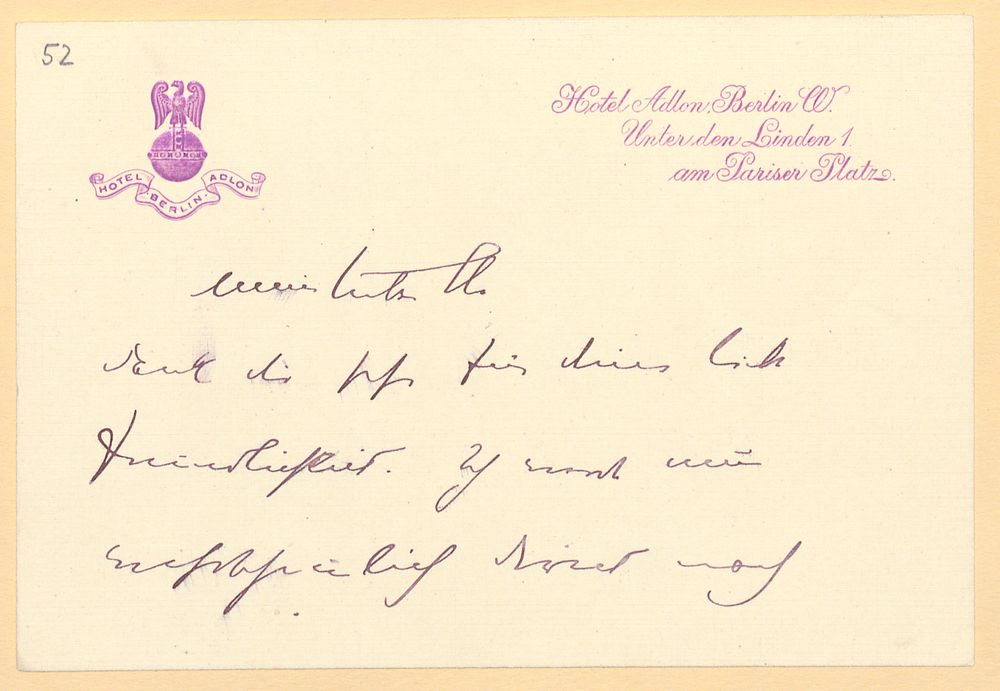 52
HOTEL ADLON
BERLIN
Hotel Adlon, Berlin W.
Unter den Linden 1.
am Pariser Platz.
mein
Dank dir sehr für deine
Freundlichkeit. Ich werde
wahrscheinlich noch